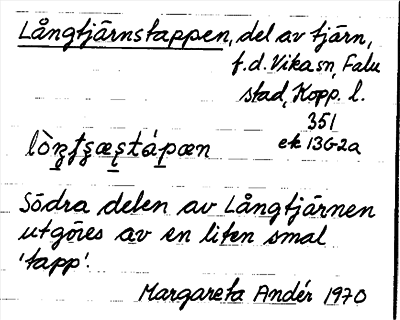 Långtjärnstappen, del av tjärn,
f.d. Vika sn, Falu
stad, Kopp. l.
351
ek 13G2a
Södra delen av Långtjärnen
utgöres av en liten smal
'tapp'.
Margareta Andér 1970